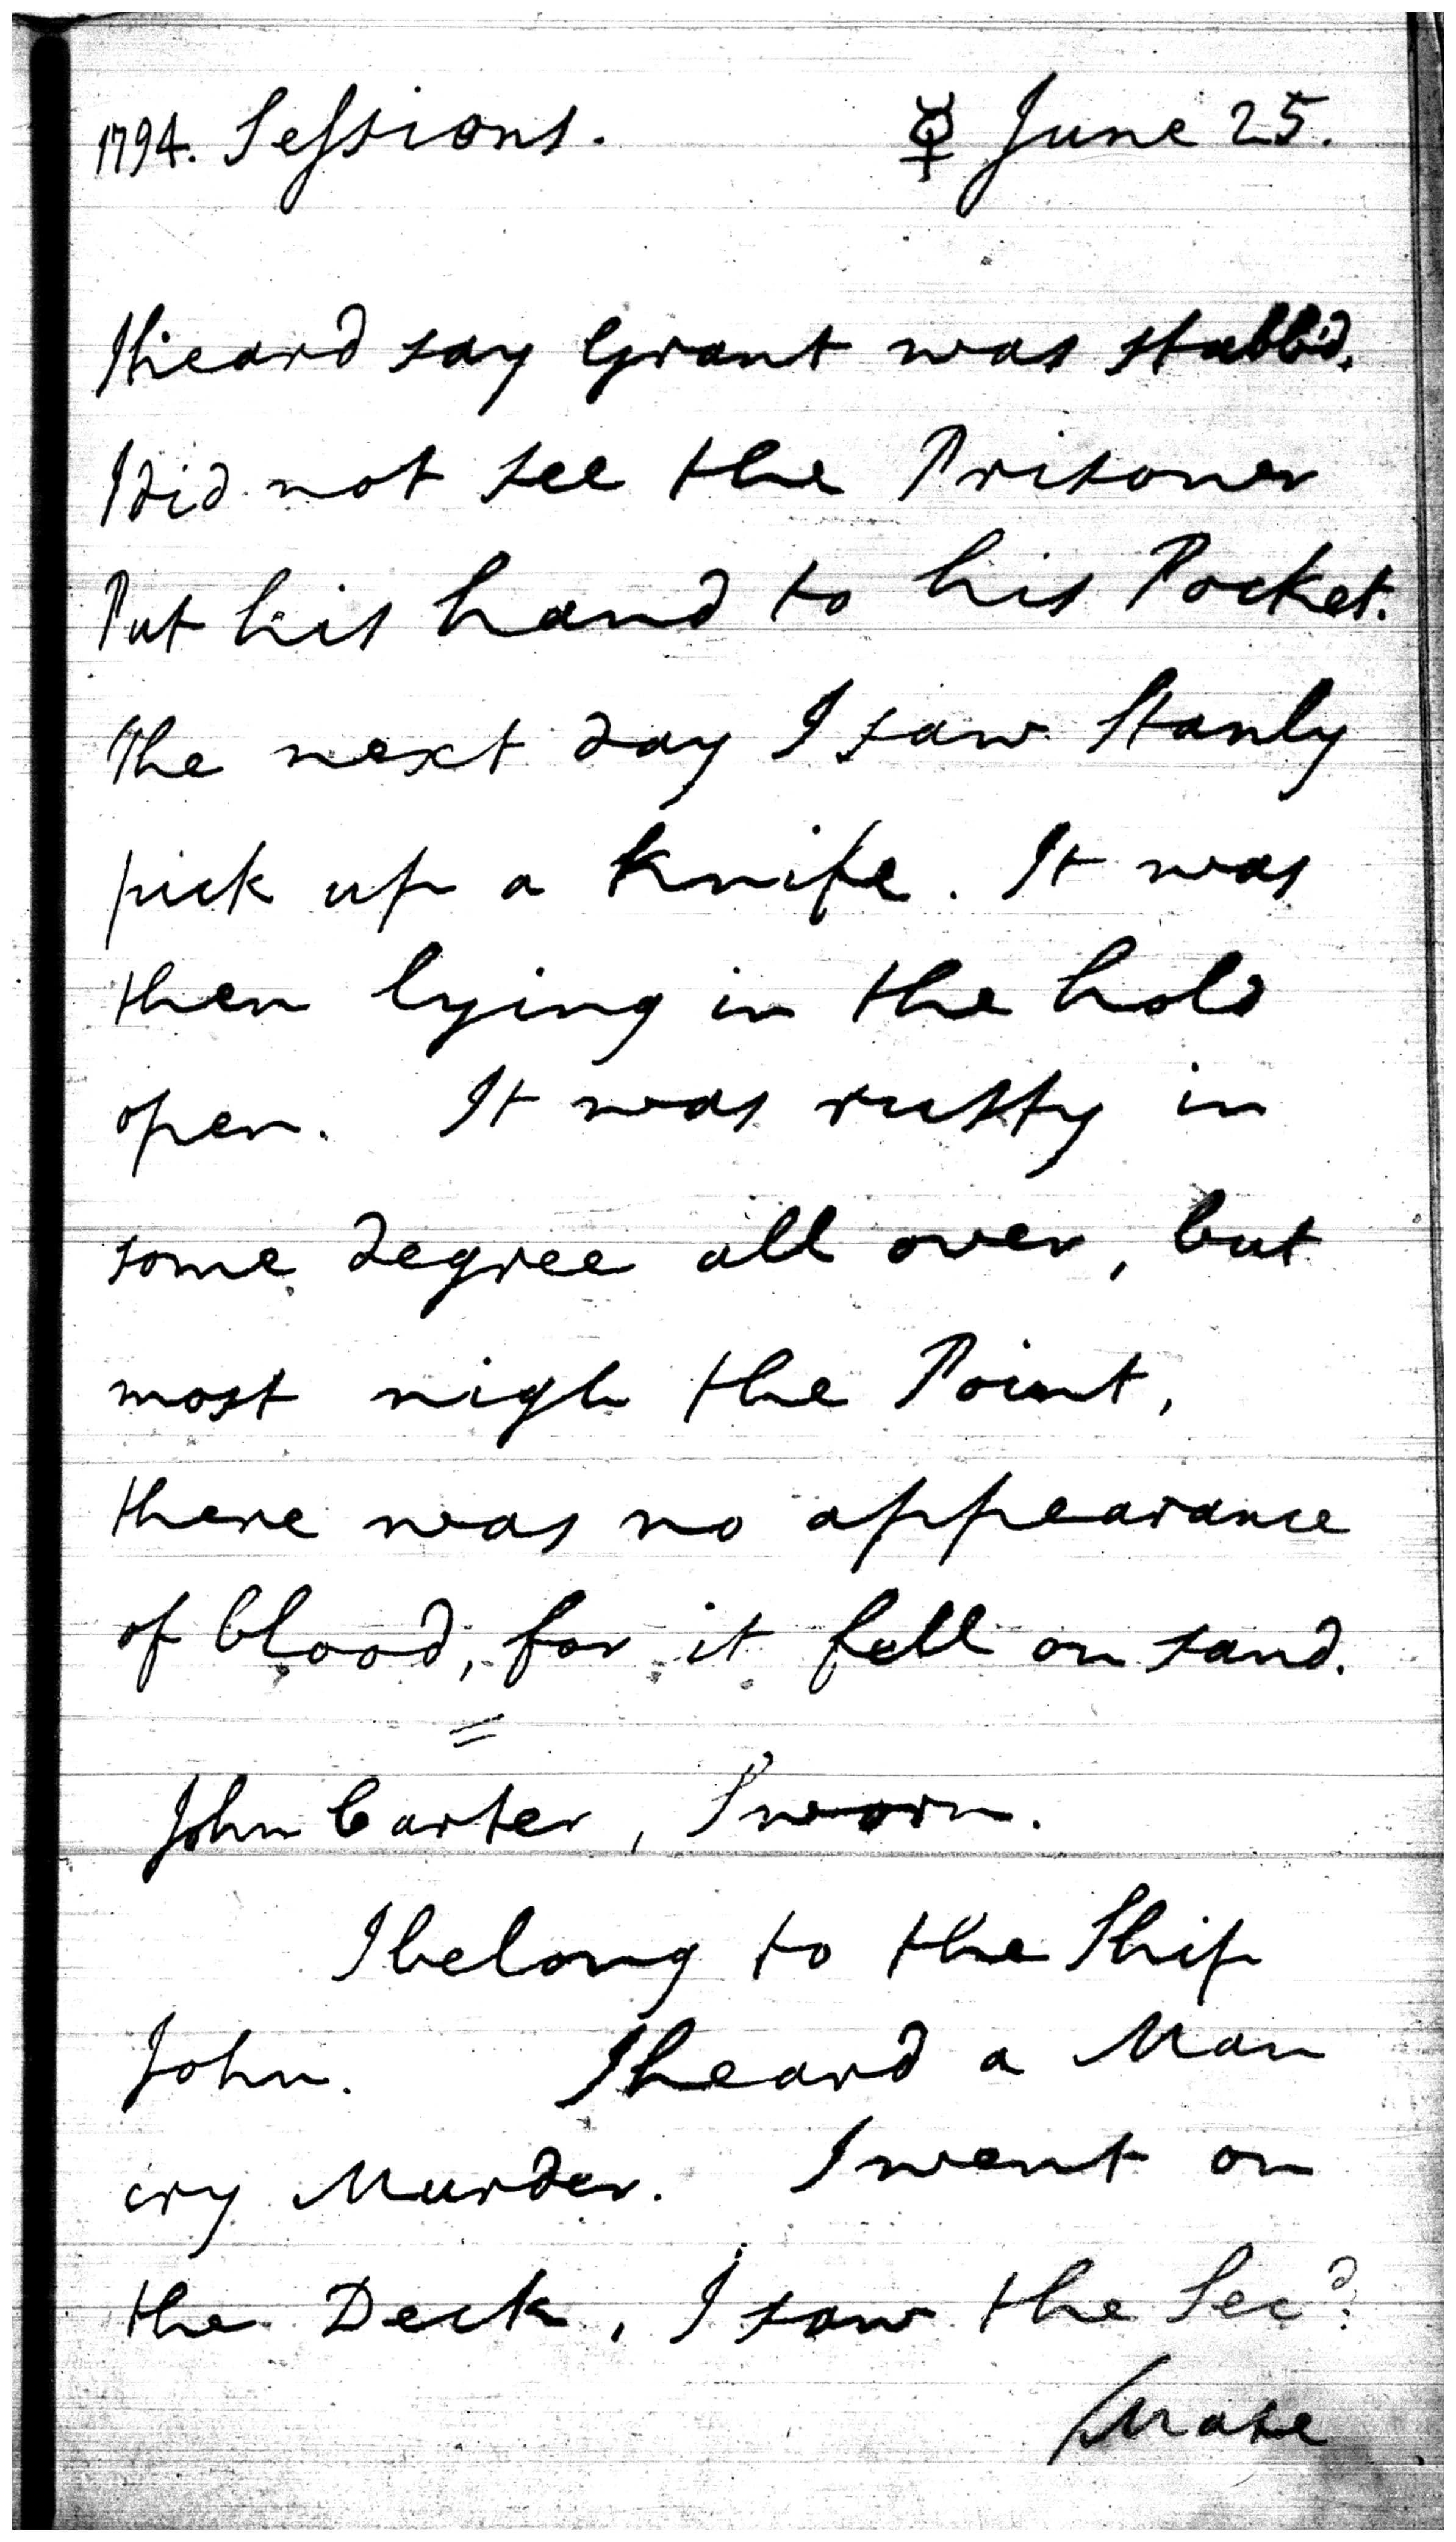 1794. Sessions. ☿ June 25.
I heard say Grant was stabb'd.
I did not see the Prisoner
Put his hand to his Pocket.
The next day I saw Stanly
pick up a knife. It was
then lying in the hold
open. It was rusty in
some degree all over, but
most nigh the Point,
there was no appearance
of blood, for it fell on sand.
=
John Carter, Sworn.
I belong to the Ship
John. I heard a Man
cry Murder. I went on
the Deck, I saw the Secd.
/Mate